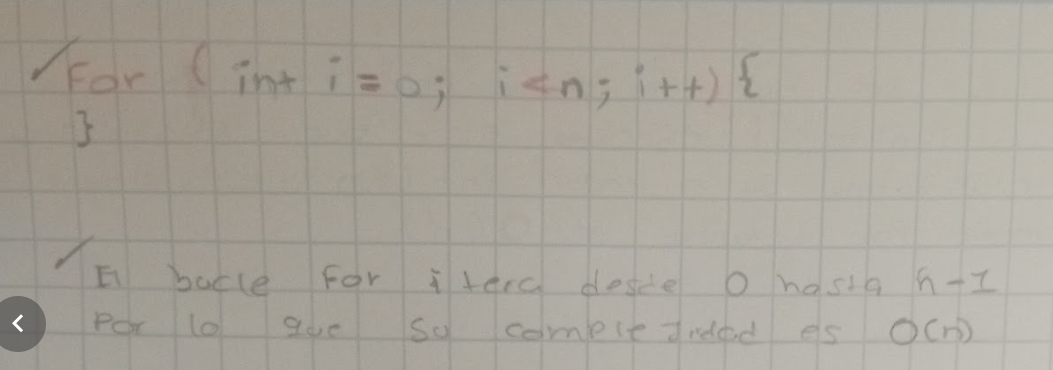 For ( int i = 0; i < n; i++) {
}
El bucle For itera desde 0 hasta n-1
Por lo que su complejidad es O(n)